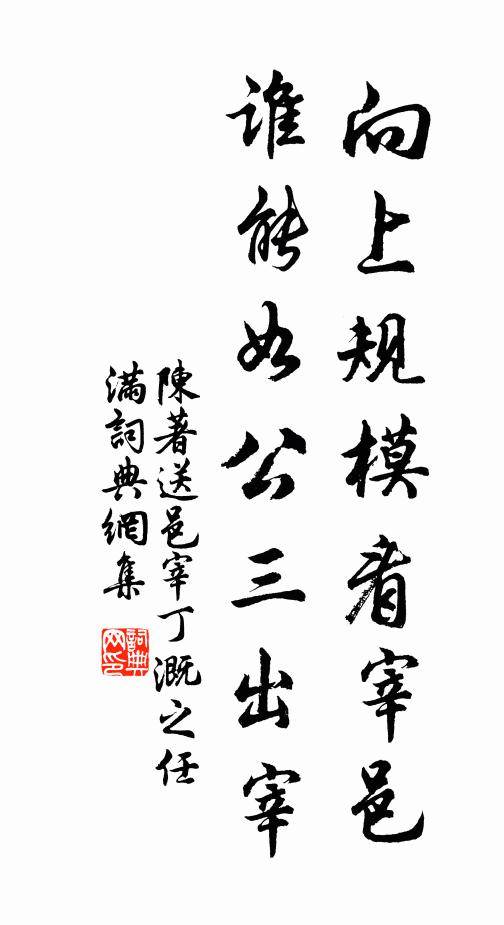 向上規模看宰邑
誰能如公三出宰
陳著送邑宰丁溉之任
滿詞典網集
詞典
网印